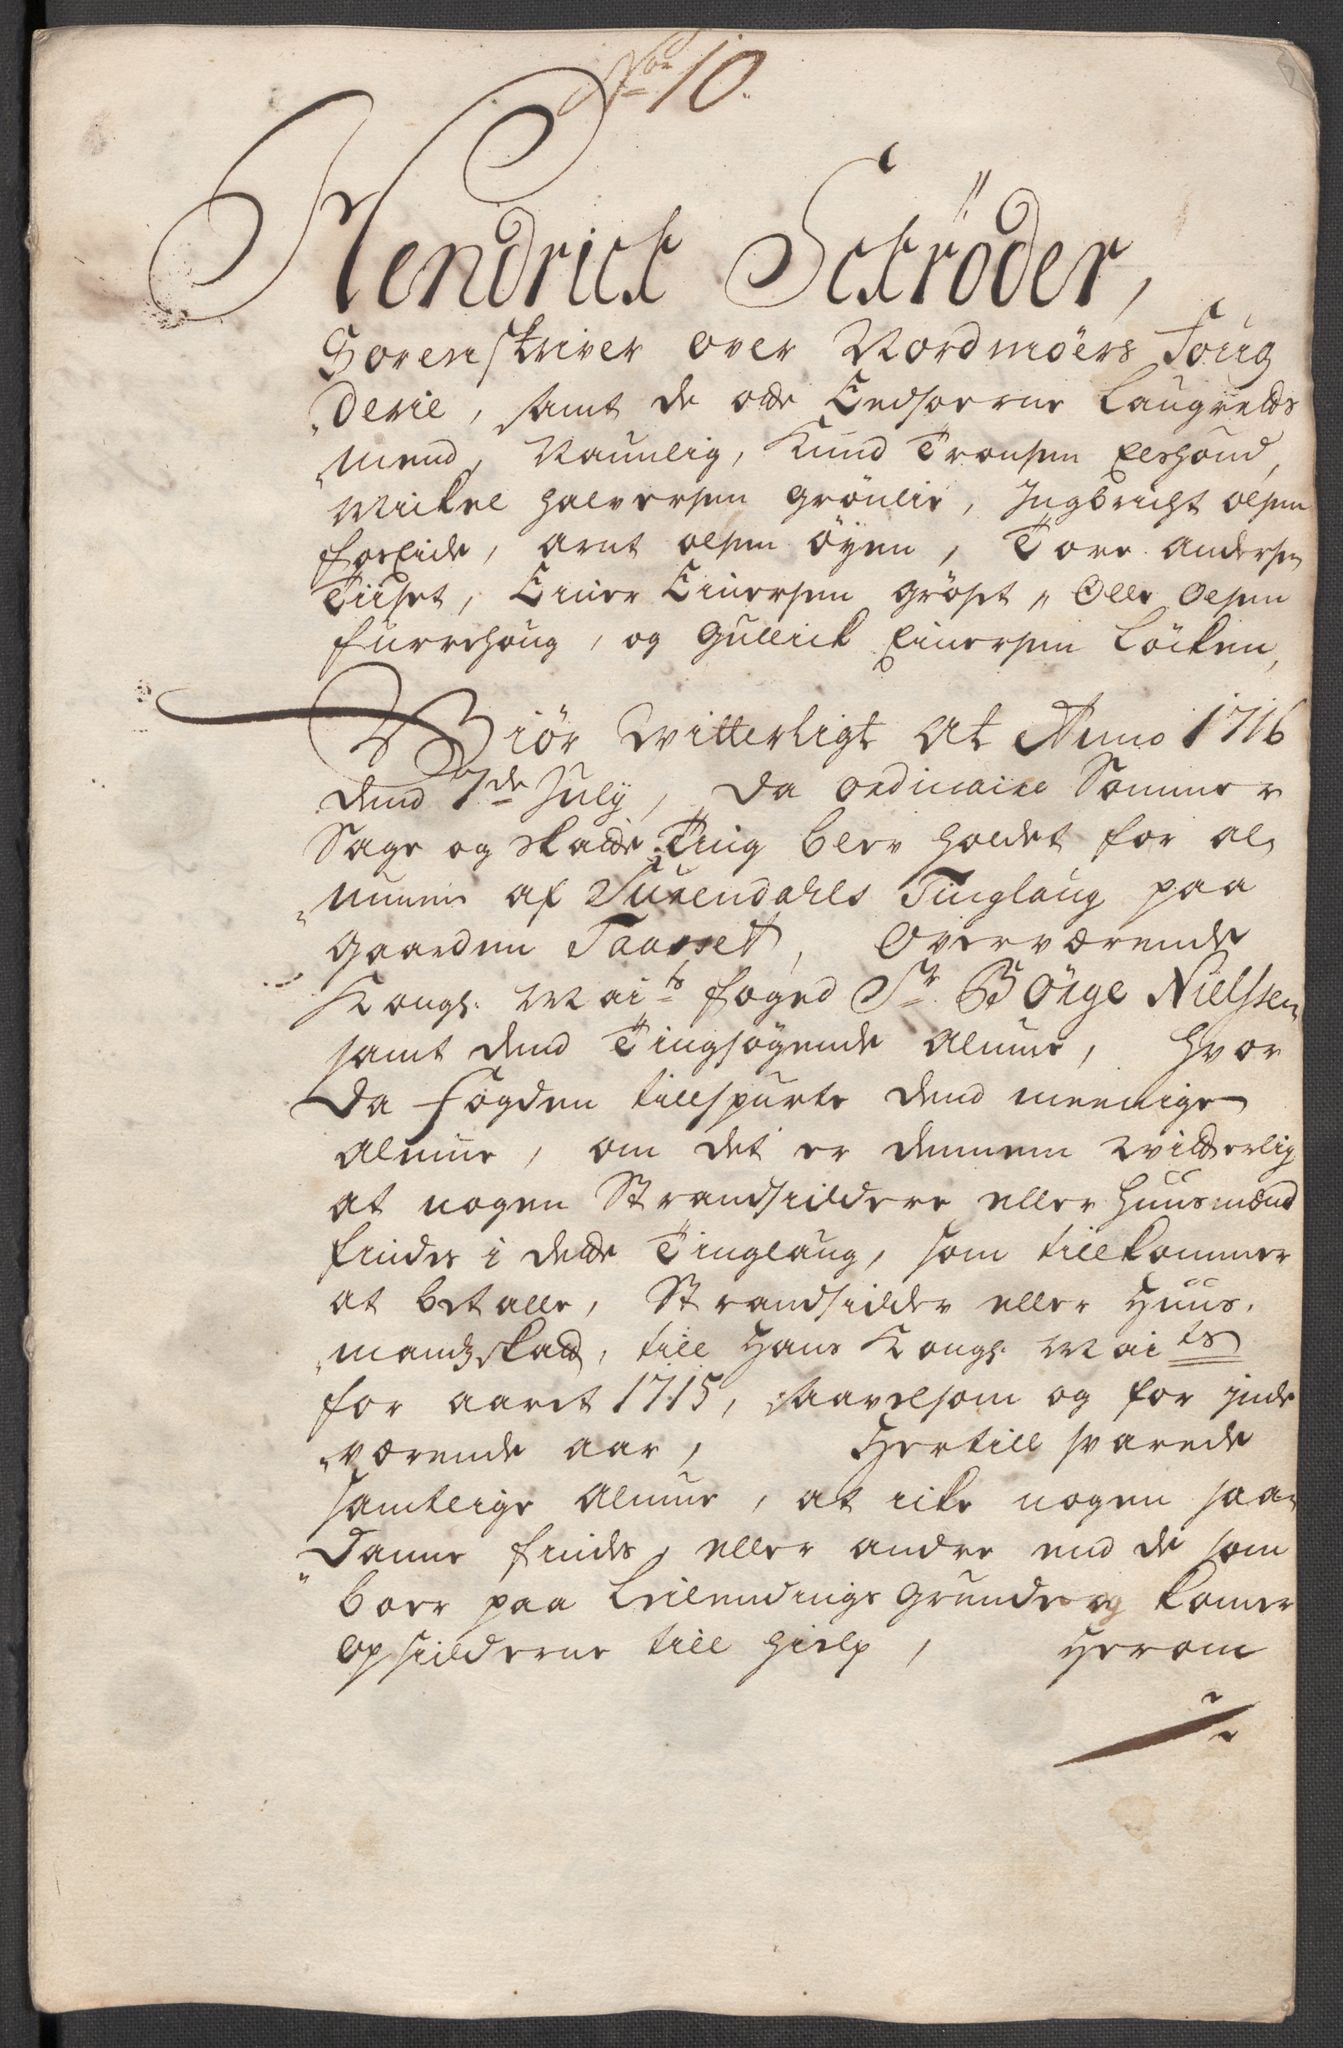 No 10.
Hendrich Schröder,
Sorenskriver over Nordmöers Foug
„derie, samt de otte Eedsoerne Laugretts
„mend, Naunlig, Knud Tronsen Elshoud,
Mickel Halversen Grönlie, Ingbricht Olsen
Foslide, Arnt Olsen Öyen, Tore Andersen
Tiiset, Einer Einersen Gröset, Olle Olsen
Furrehoug, og Gullick Einersen Löcken,
Giör Witterligt At Anno 1716
dend 7de July, da ordinaire Sommer
Sage og Skatte Ting blev holdet for al„
„muen af Surendahls Tinglaug paa
gaarden Taasset, Overværende
Kongl: Maits foged Sr Börge Nielssen
samt dend Tingsögende Almue, hvor
da fogden tillspurte dend meenige
Almue, om det er dennem witterlig
at nogen Strandsiddere eller Huusmænd
findes i dette Tinglaug, som tillkommer
at betalle, Strandsidder eller Huus„
„mandskatt, till Hans Kongl: Maits
for aaret 1715, saavelsom og for inde
„værende aar, Hertill svarede
samtlige Almue, at icke nogen saa„
„danne findes, eller andre end de som
boer paa Leilendings grunde og komer
opsidderne till hielp, Herom